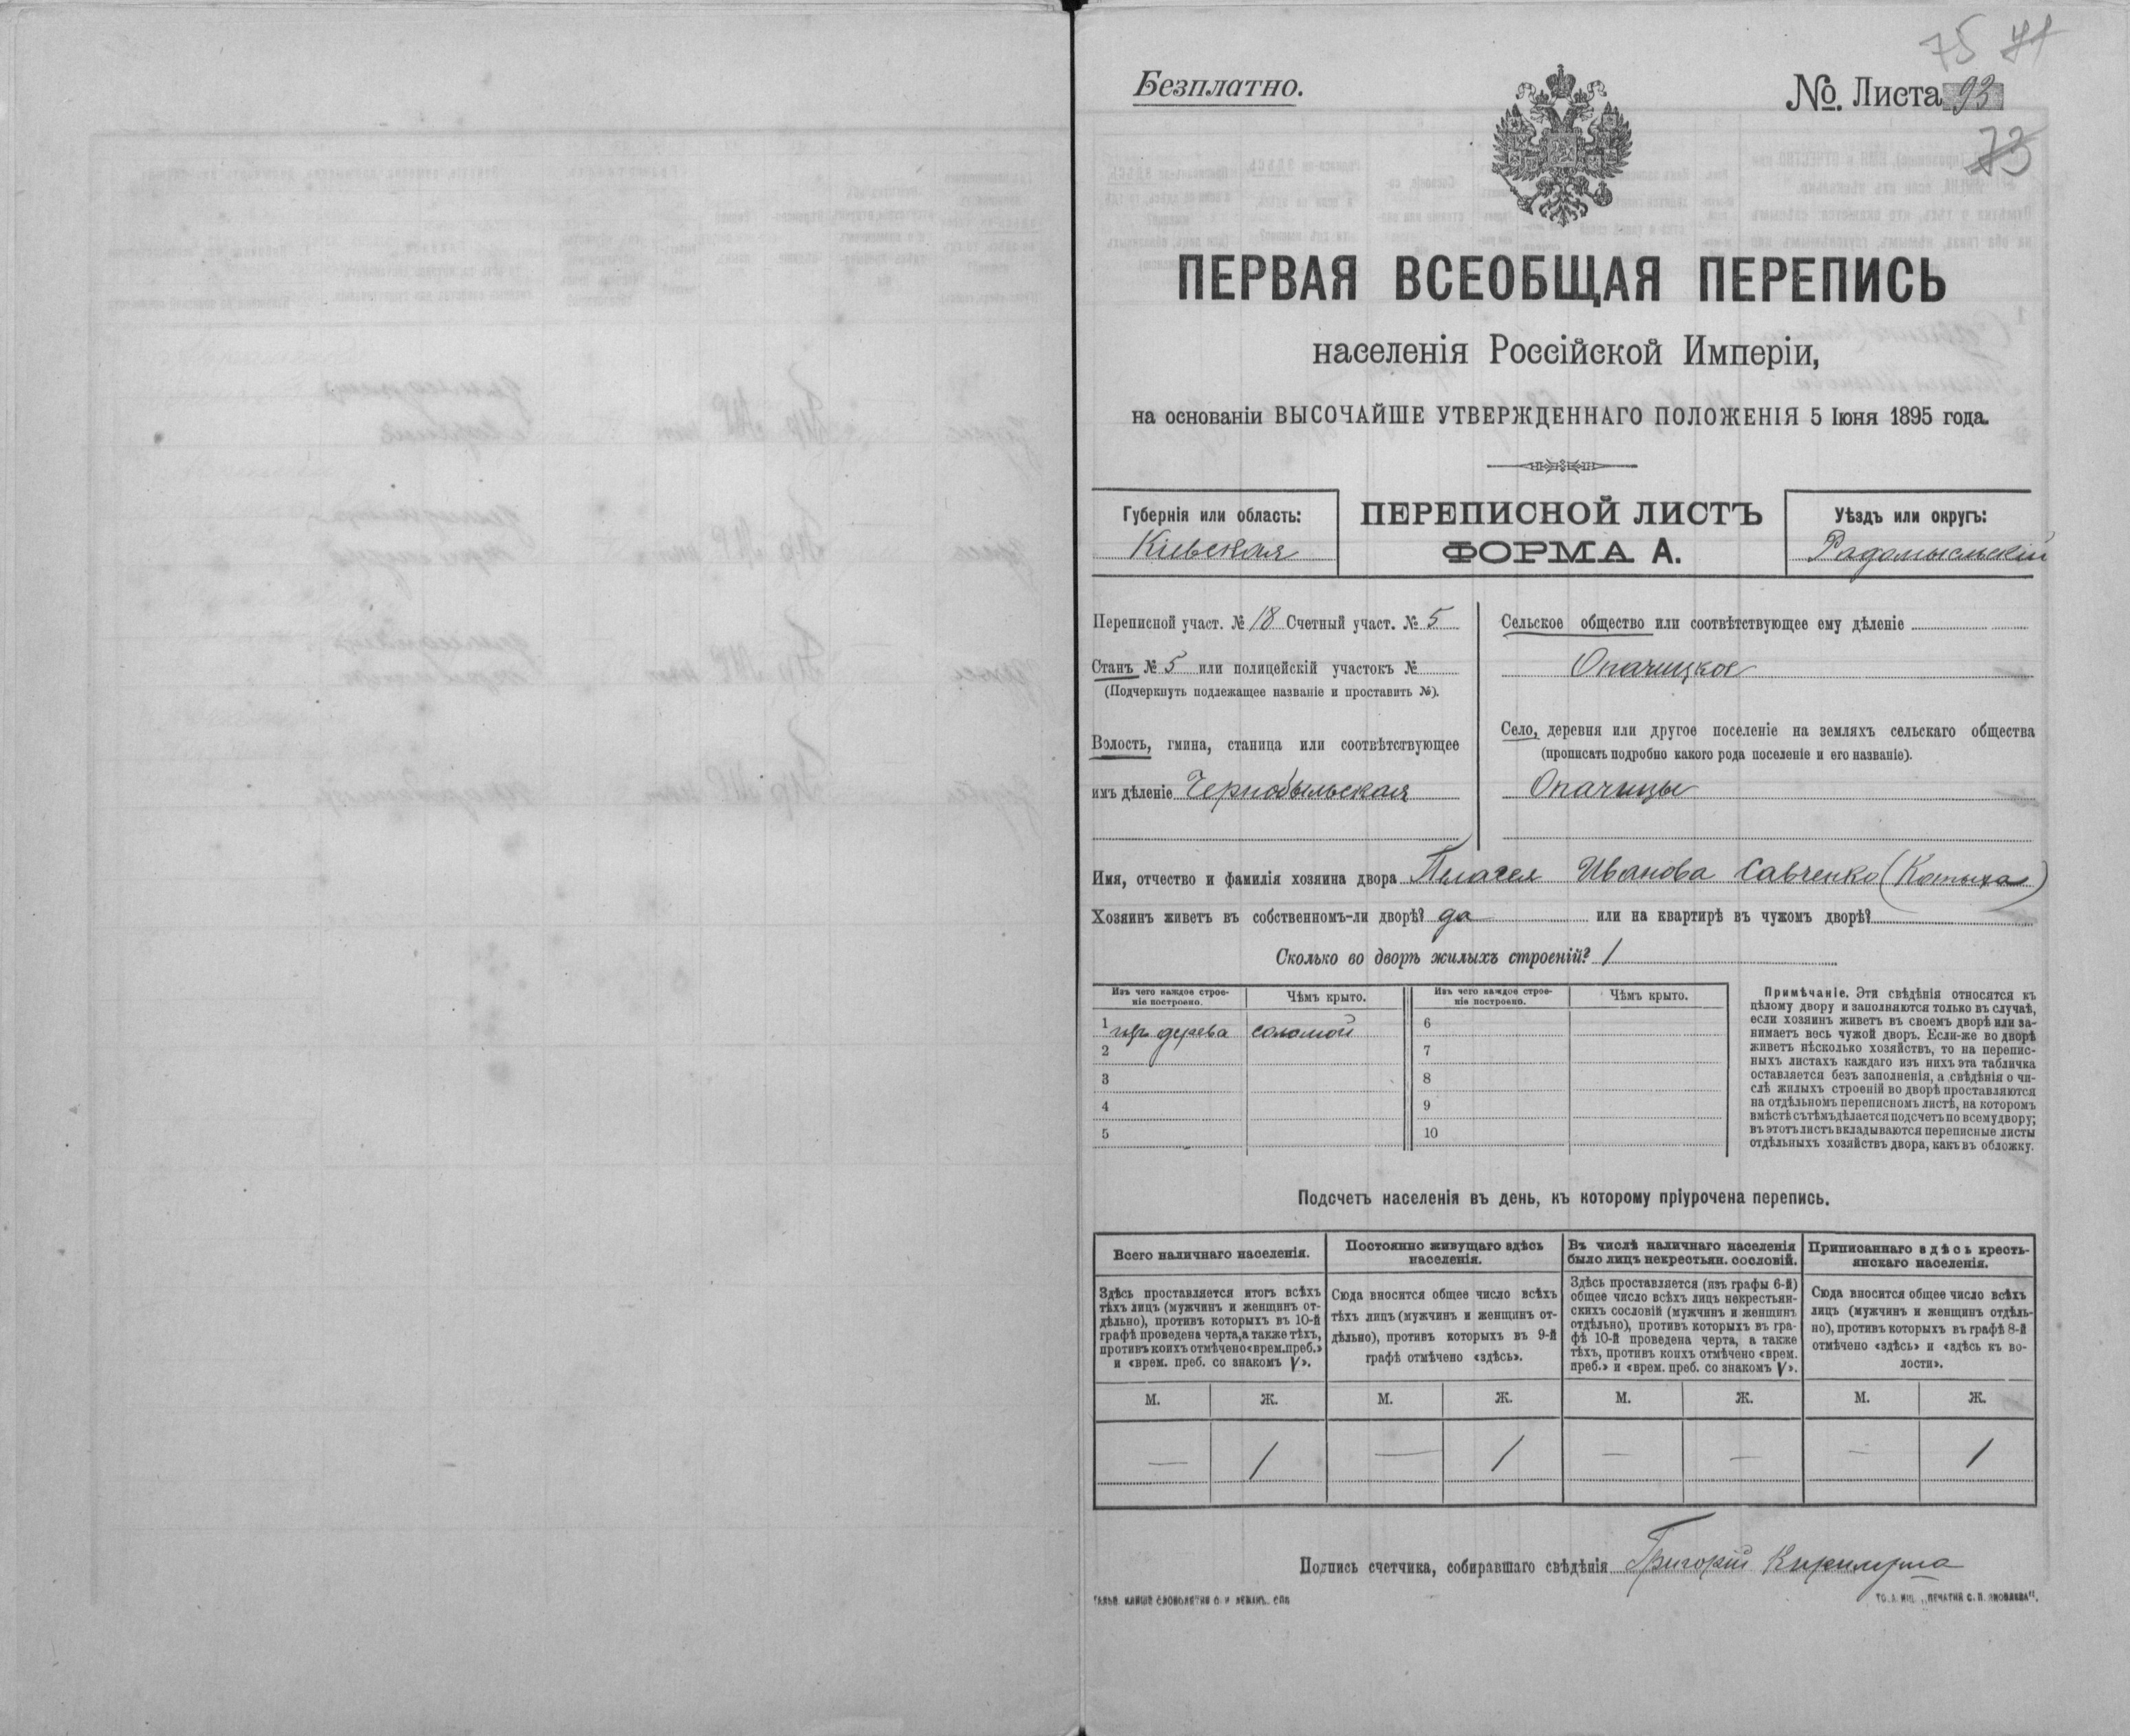 75 71
Безплатно.
№. Листа 93
73
ПЕРВАЯ ВСЕОБЩАЯ ПЕРЕПИСЬ
населенія Россійской Имперіи,
на основаніи ВЫСОЧАЙШЕ УТВЕРЖДЕННАГО ПОЛОЖЕНІЯ 5 Іюня 1895 года.
Губернія или область:
Кіевская
ПЕРЕПИСНОЙ ЛИСТЪ
ФОРМА А.
Уѣздъ или округъ:
Радомысльскій
Переписной участ. № 18 Счетный участ. № 5
Станъ № 5 или полицейскій участокъ №
(Подчеркнуть подлежащее названіе и проставить №).
Волость, гмина, станица или соотвѣтствующее
имъ дѣленіе Чернобыльская
Сельское общество или соотвѣтствующее ему дѣленіе
Опачицкое
Село, деревня или другое поселеніе на земляхъ сельскаго общества
(прописать подробно какого рода поселеніе и его названіе).
Опачицы
Имя, отчество и фамилія хозяина двора Пелагея Иванова Савченко (Котыха)
Хозяинъ живетъ въ собственномъ-ли дворѣ? да или на квартирѣ въ чужомъ дворѣ?
Сколько во дворѣ жилыхъ строеній? 1
Изъ чего каждое строе-
ніе построено.
Чѣмъ крыто.
Изъ чего каждое строе-
ніе построено.
Чѣмъ крыто.
1 изъ дерева соломой 6
2 7
3 8
4 9
5 10
Примѣчаніе. Эти свѣдѣнія относятся къ
цѣлому двору и заполняются только въ случаѣ,
если хозяинъ живетъ въ своемъ дворѣ или за-
нимаетъ весь чужой дворъ. Если-же во дворѣ
живетъ нѣсколько хозяйствъ, то на перепис-
ныхъ листахъ каждаго изъ нихъ эта табличка
оставляется безъ заполненія, а свѣдѣнія о чи-
слѣ жилыхъ строеній во дворѣ проставляются
на отдѣльномъ переписномъ листѣ, на которомъ
вмѣстѣ съ тѣмъ дѣлается подсчетъ по всему двору;
въ этотъ листъ вкладываются переписные листы
отдѣльныхъ хозяйствъ двора, какъ въ обложку.
Подсчетъ населенія въ день, къ которому пріурочена перепись.
Всего наличнаго населенія.
Здѣсь проставляется итогъ всѣхъ
тѣхъ лицъ (мужчинъ и женщинъ от-
дѣльно), противъ которыхъ въ 10-й
графѣ проведена черта, а также тѣхъ,
противъ коихъ отмѣчено «врем. преб.»
и «врем. преб. со знакомъ V».
Постоянно живущаго здѣсь
населенія.
Сюда вносится общее число всѣхъ
тѣхъ лицъ (мужчинъ и женщинъ от-
дѣльно), противъ которыхъ въ 9-й
графѣ отмѣчено «здѣсь».
Въ числѣ наличнаго населенія
было лицъ некрестьян. сословій.
Здѣсь проставляется (изъ графы 6-й)
общее число всѣхъ лицъ некрестьян-
скихъ сословій (мужчинъ и женщинъ
отдѣльно), противъ которыхъ въ гра-
фѣ 10-й проведена черта, а также
тѣхъ, противъ коихъ отмѣчено «врем.
преб.» и «врем. преб. со знакомъ V».
Приписаннаго здѣсь кресть-
янскаго населенія.
Сюда вносится общее число всѣхъ
лицъ (мужчинъ и женщинъ отдѣль-
но), противъ которыхъ въ графѣ 8-й
отмѣчено «здѣсь» и «здѣсь къ во-
лости».
М. Ж. М. Ж. М. Ж. М. Ж.
— 1 — 1 — — — 1
Подпись счетчика, собиравшаго свѣдѣнія Григорій